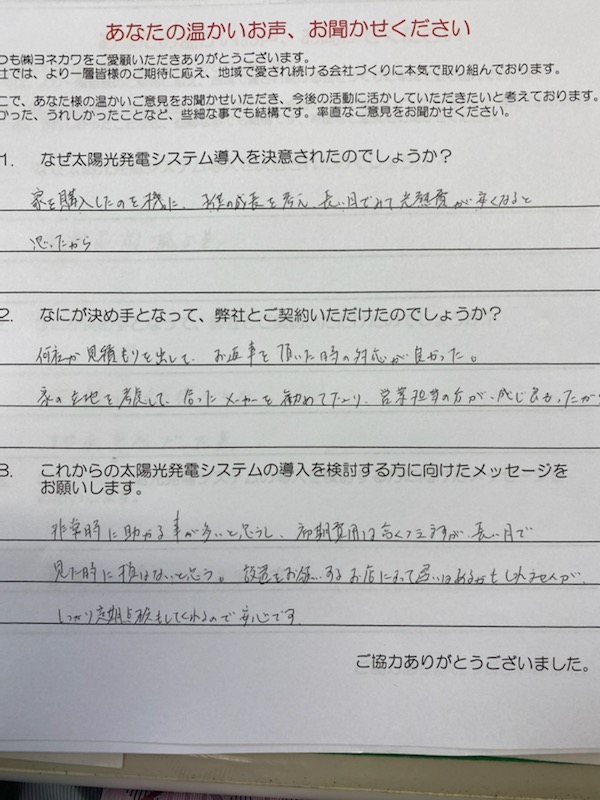 あなたの温かいお声、お聞かせください
つも㈱ヨネカワをご愛顧いただきありがとうございます。
社では、より一層皆様のご期待に応え、地域で愛され続ける会社づくりに本気で取り組んでおります。
こで、あなた様の温かいご意見をお聞かせいただき、今後の活動に活かしていただきたいと考えております。
かった、うれしかったことなど、些細な事でも結構です。率直なご意見をお聞かせください。
1. なぜ太陽光発電システム導入を決意されたのでしょうか？
家を購入したのを機に、子供の成長を考え、長い目でみて光熱費が安くなると
思ったから
2. なにが決め手となって、弊社とご契約いただけたのでしょうか？
何社か見積もりを出して、お返事を頂いた時の対応が良かった。
家の立地を考慮して、合ったメーカーを勧めて下さり、営業担当の方が、感じ良かったから
3. これからの太陽光発電システムの導入を検討する方に向けたメッセージを
お願いします。
非常時に助かる事が多いと思うし、初期費用は高くつきますが、長い目で
見た時に損はないと思う。設置をお願いするお店によって違いはあるかもしれませんが、
しっかり定期点検もしてくれるので安心です
ご協力ありがとうございました。